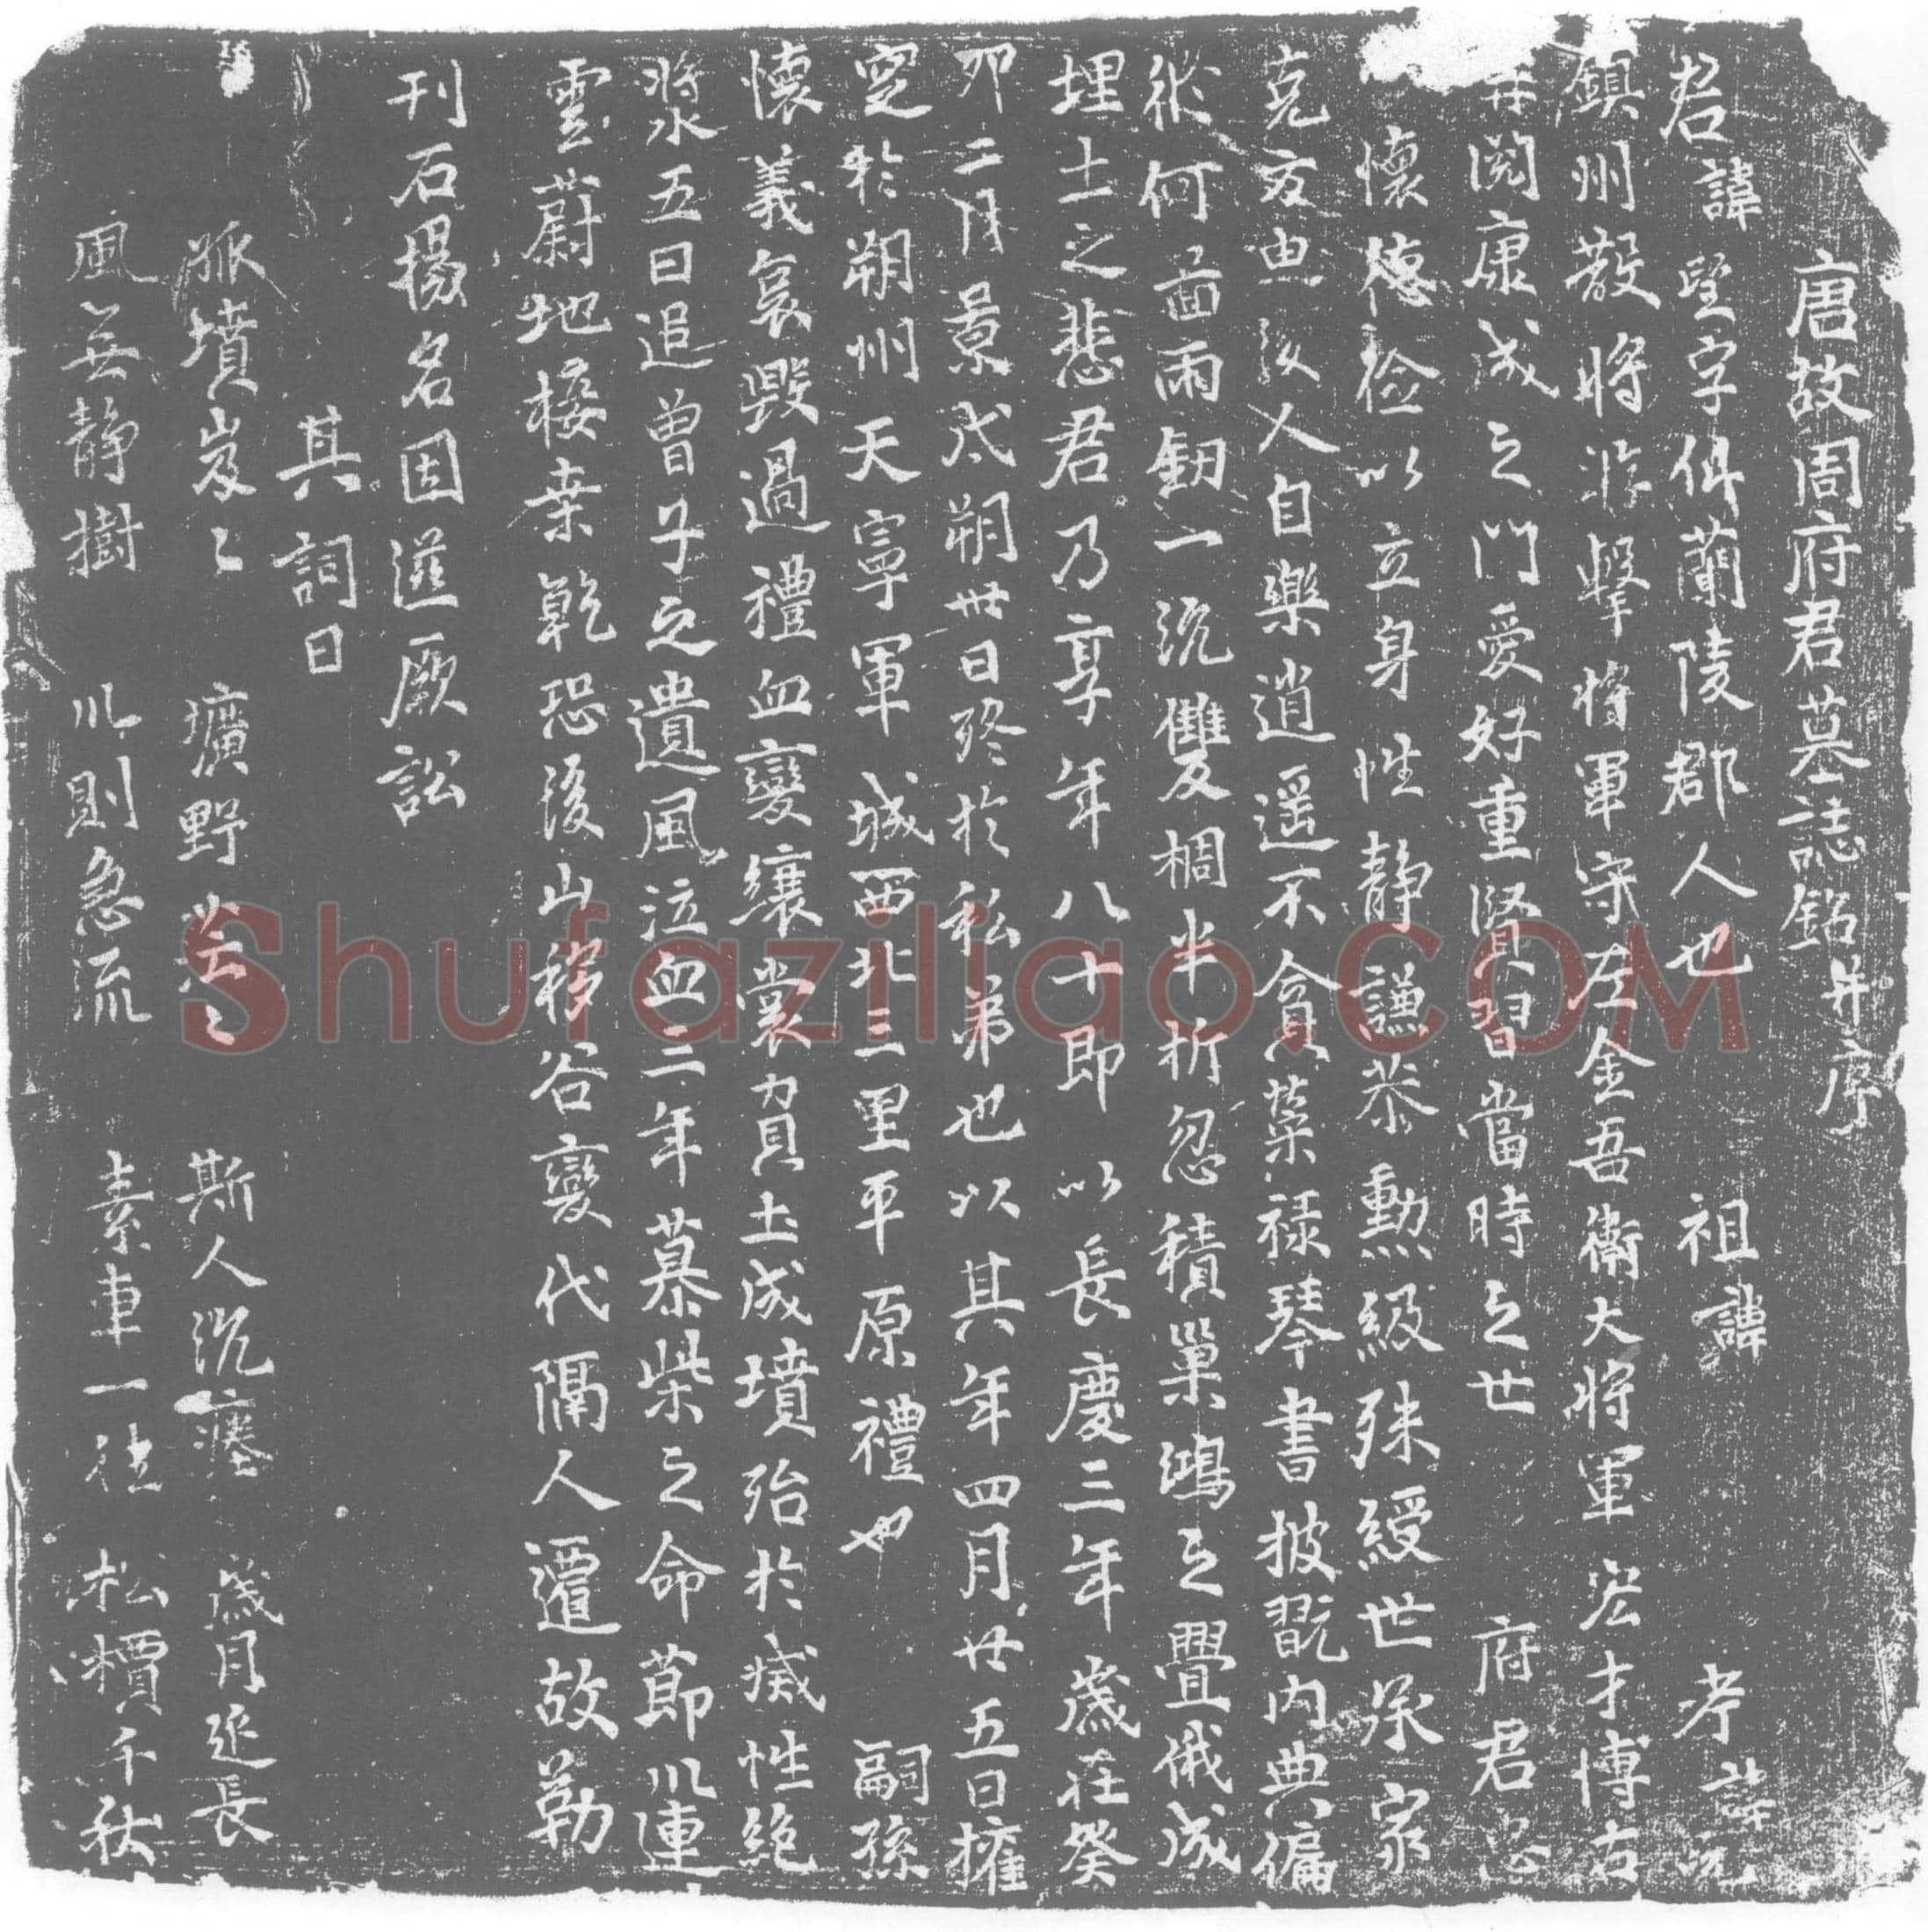 唐故周府君墓誌銘并序
君諱望字侔蘭陵郡人也 祖諱 考諱沅
鎮州散將游擊將軍守左金吾衛大將軍宏才博古
井閱康成之門愛好重賢習當時之世 府君忠
懷德儉以立身性静謙恭勳級殊綬世承家
克友由 人自樂逍遥不貪葉禄琴書披翫内典偏
從何啚兩釼一沉雙桐半折忽積巢鴻之疊俄成
埋土之悲君乃享年八十即以長慶三年歲在癸
卯二月景戌朔廿日終於私弟也以其年四月廿五日擁
窆於朔州天寧軍城西北三里平原禮也 嗣孫
懷義哀毀過禮血變縗裳負土成墳殆於滅性絶
漿五日追曾子之遺風泣血三年慕柴之命節川連
雲蔚地接桒乾恐後山移谷變代隔人遷故勒
刊石揚名固滋厥訟
其詞曰
孤墳岌々 壙野茫々 斯人沉瘞 歲月延長
風無静樹 川則急流 素車一往 松檟千秋
Shufaziliao.COM